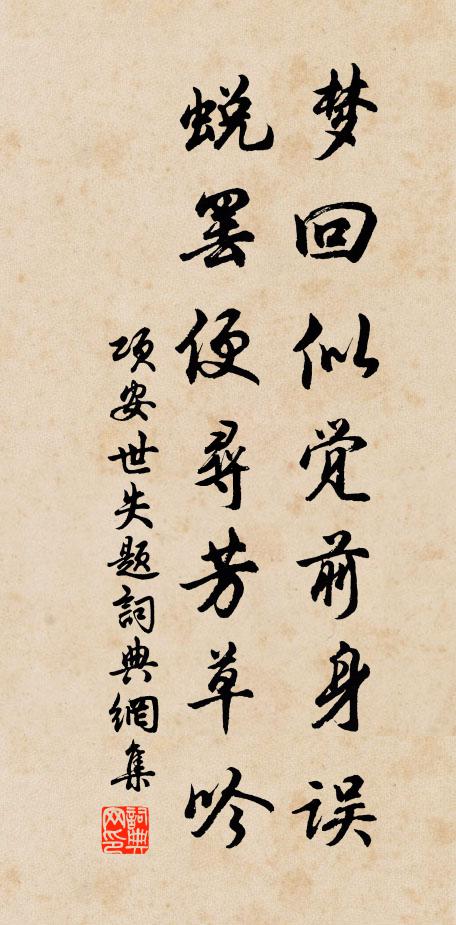 梦回似觉前身误
蜕罢便寻芳草吟
项安世失题詞典網集
詞典网印